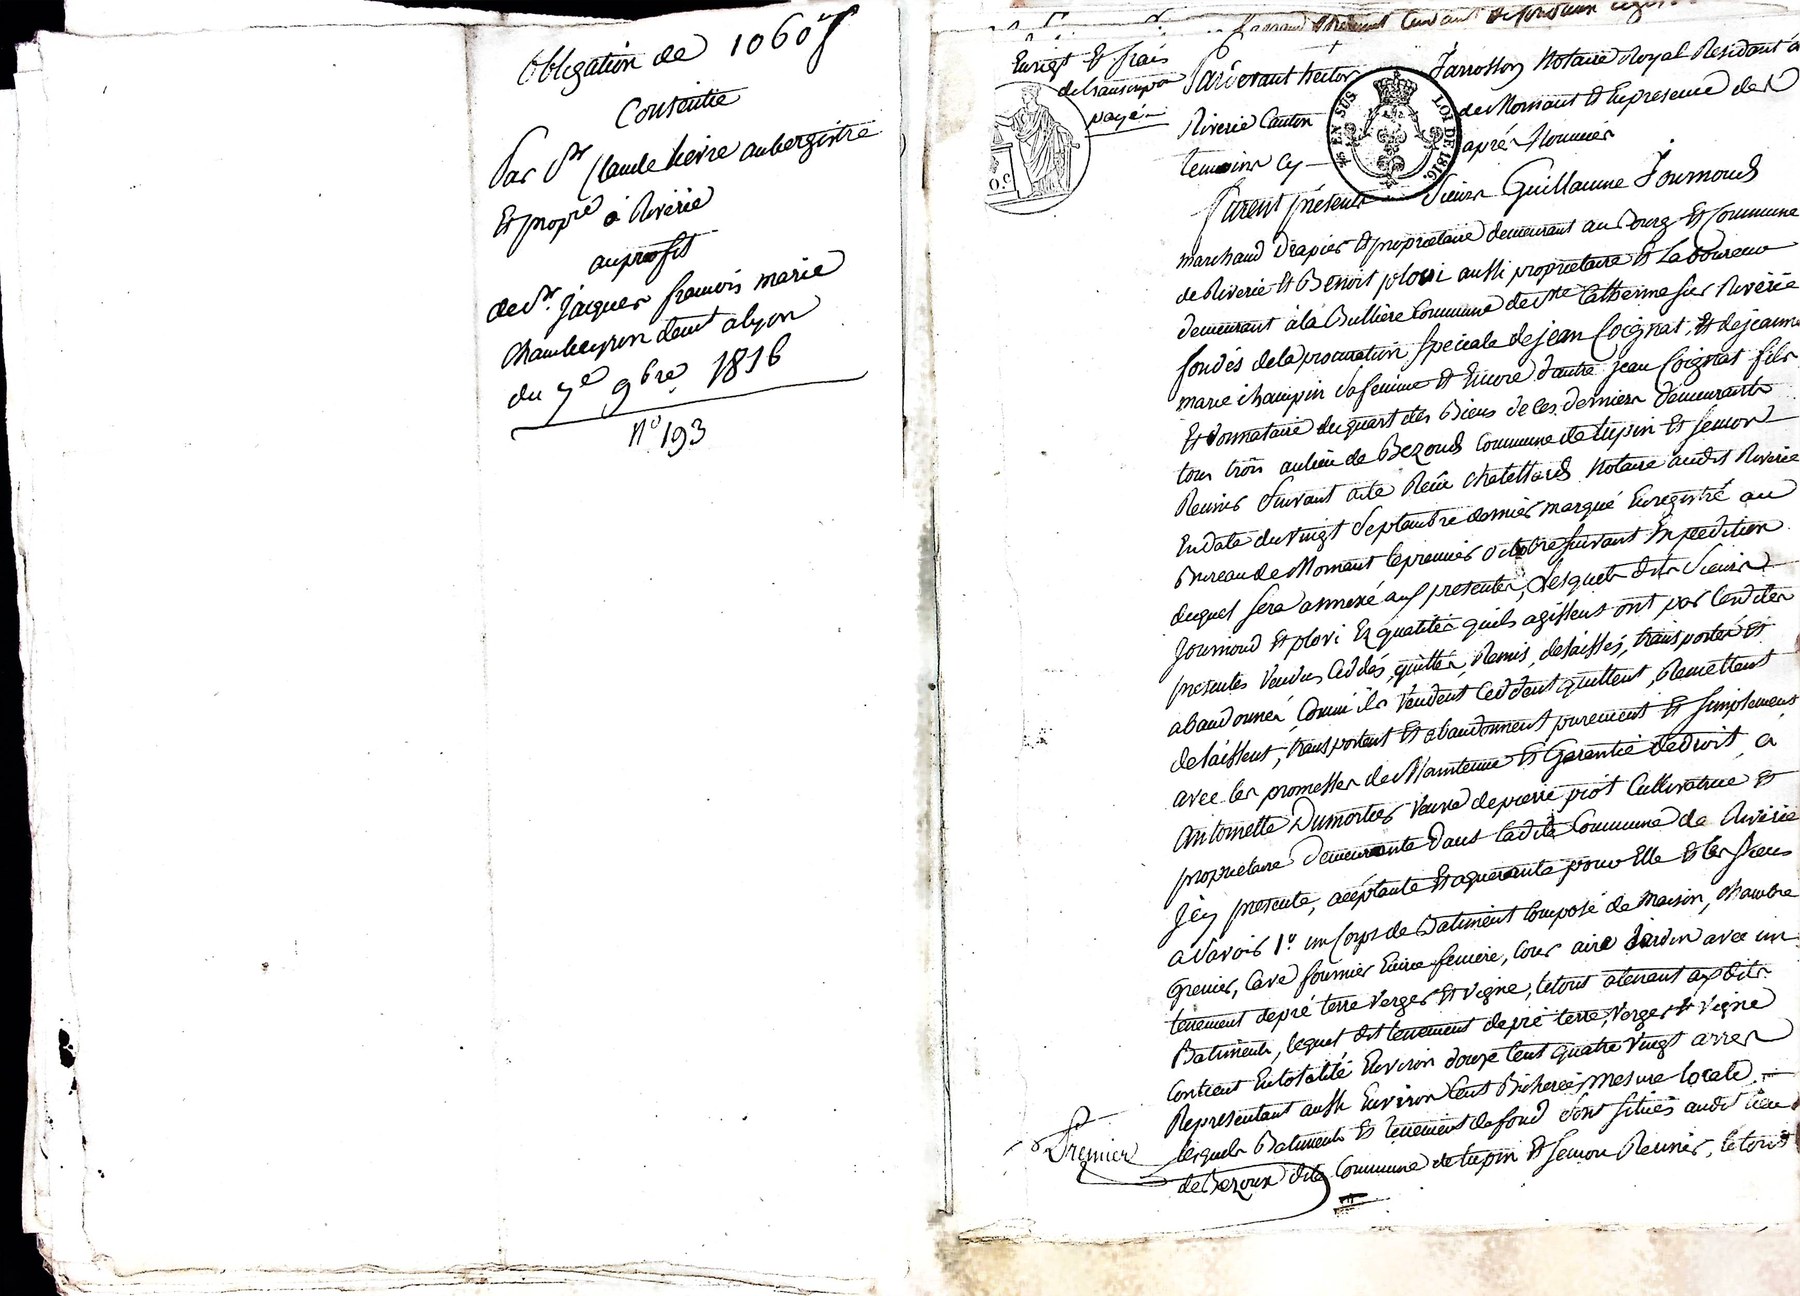 Obligation de 1060 f
Consentie
Par Sr Claude aubergiste
Et propre à Riverie
au profit
de Sr. Jacques françois marie
Chambeyron demt a lyon
du 7e 9bre 1816
No 193
Enregt Et frais
de transcripon
payé
Pardevant hector Jarrosson Notaire Royal Residant à
Riverie Canton de Mornant Et En presence des
temoins cy aprés Nommés
EN SUS LOI DE 1816.
Furent présents Sieurs Guillaume Journoud
marchand drapier Et proprietaire demeurant au Bourg Et Commune
de Riverie Et Benoit plovi aussi proprietaire Et Laboureur
demeurant à la Bullière Commune de Ste Catherine sur Riverie
fondés de la procuration speciale de jean Coignat, Et de jeanne
marie champin sa femme Et Encore d'autre jean Coignat fils
Et donnataire du quart des Biens de ces derniers demeurants
tous trois au lieu de Bezoud Commune de tupin Et semon
Reunis suivant acte Reçu chatellard Notaire audit Riverie
En date du vingt septembre dernier marqué Enregistré au
Bureau de Mornant le premier octobre suivant Expedition
duquel sera annexé aux presentes, Lesquels dits sieurs
Journoud Et plovi Ez qualités quils agissent ont par Cesdites
presentes Vendus Ceddés, quittés, Remis, delaissés, transportés Et
abandonnés Comm'ils Vendent Ceddent quittent, Remettent
delaissent, transportent Et abandonnent purement Et simplement
avec les promesses de Maintenue Et Garentie de droit, a
Antoinette Dumortier Veuve de pierre piot Cultivatrice Et
proprietaire demeurante dans ladite Commune de Riverie
Jcy presente, acceptante Et aquerante pour Elle Et les siens
a savoir 1o un Corps de Batiment Composé de maison, chambre
Grenier, Cave fournier Ecurie feniere, Cour aire Jardin avec un
tenement de pré terre Verger Et Vigne, le tout atenant aux dits
Batiments, lequel dit tenement de pré terre, Verger Et Vigne
Contient En totalité Environ douze Cent quatre Vingt arres
Representant aussi Environ Cent Bicherées Mesure locale
lesquels Batiments Et tenement de fond sont situés audit lieu
de Bezoud dite Commune de tupin Et semon Reunis, le tout
Premier